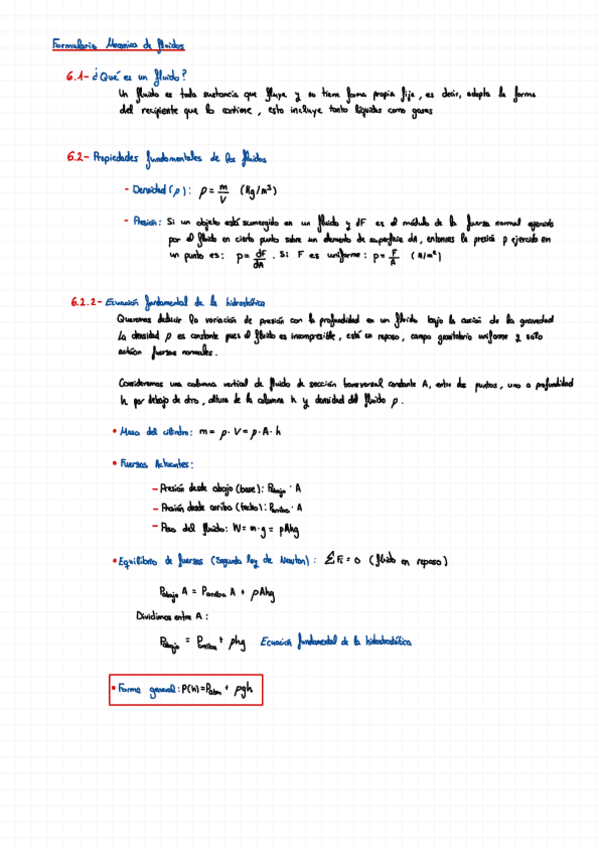 Formulario Mecanica de fluidos
6.1- ¿Qué es un fluido?
Un fluido es toda sustancia que fluye y no tiene forma propia fija, es decir, adopta la forma
del recipiente que lo contiene, esto incluye tanto líquidos como gases
6.2- Propiedades fundamentales de los fluidos
- Densidad (ρ): ρ = m/V (Kg/m³)
- Presión: Si un objeto está sumergido en un fluido y dF es el módulo de la fuerza normal ejercida
por el fluido en cierto punto sobre un elemento de superficie dA, entonces la presión p ejercida en
un punto es: p = dF/dA . Si F es uniforme: p = F/A (N/m²)
6.2.2- Ecuación fundamental de la hidrostática
Queremos deducir la variación de presión con la profundidad en un fluido bajo la acción de la gravedad
La densidad ρ es constante pues el fluido es incompresible, está en reposo, campo gravitatorio uniforme y solo
actúan fuerzas normales.
Consideremos una columna vertical de fluido de sección transversal constante A, entre dos puntos, uno a profundidad
h por debajo de otro, altura de la columna h y densidad del fluido ρ.
• Masa del cilindro: m = ρ · V = ρ · A · h
• Fuerzas Actuantes:
- Presión desde abajo (base): Pabajo · A
- Presión desde arriba (techo): Parriba · A
- Peso del fluido: W = m · g = ρAhg
• Equilibrio de fuerzas (Segunda ley de Newton): ΣF = 0 (fluido en reposo)
Pabajo A = Parriba A + ρAhg
Dividimos entre A:
Pabajo = Parriba + ρhg Ecuacion fundamental de la hidrostática
• Forma general: P(h) = Patm + ρgh